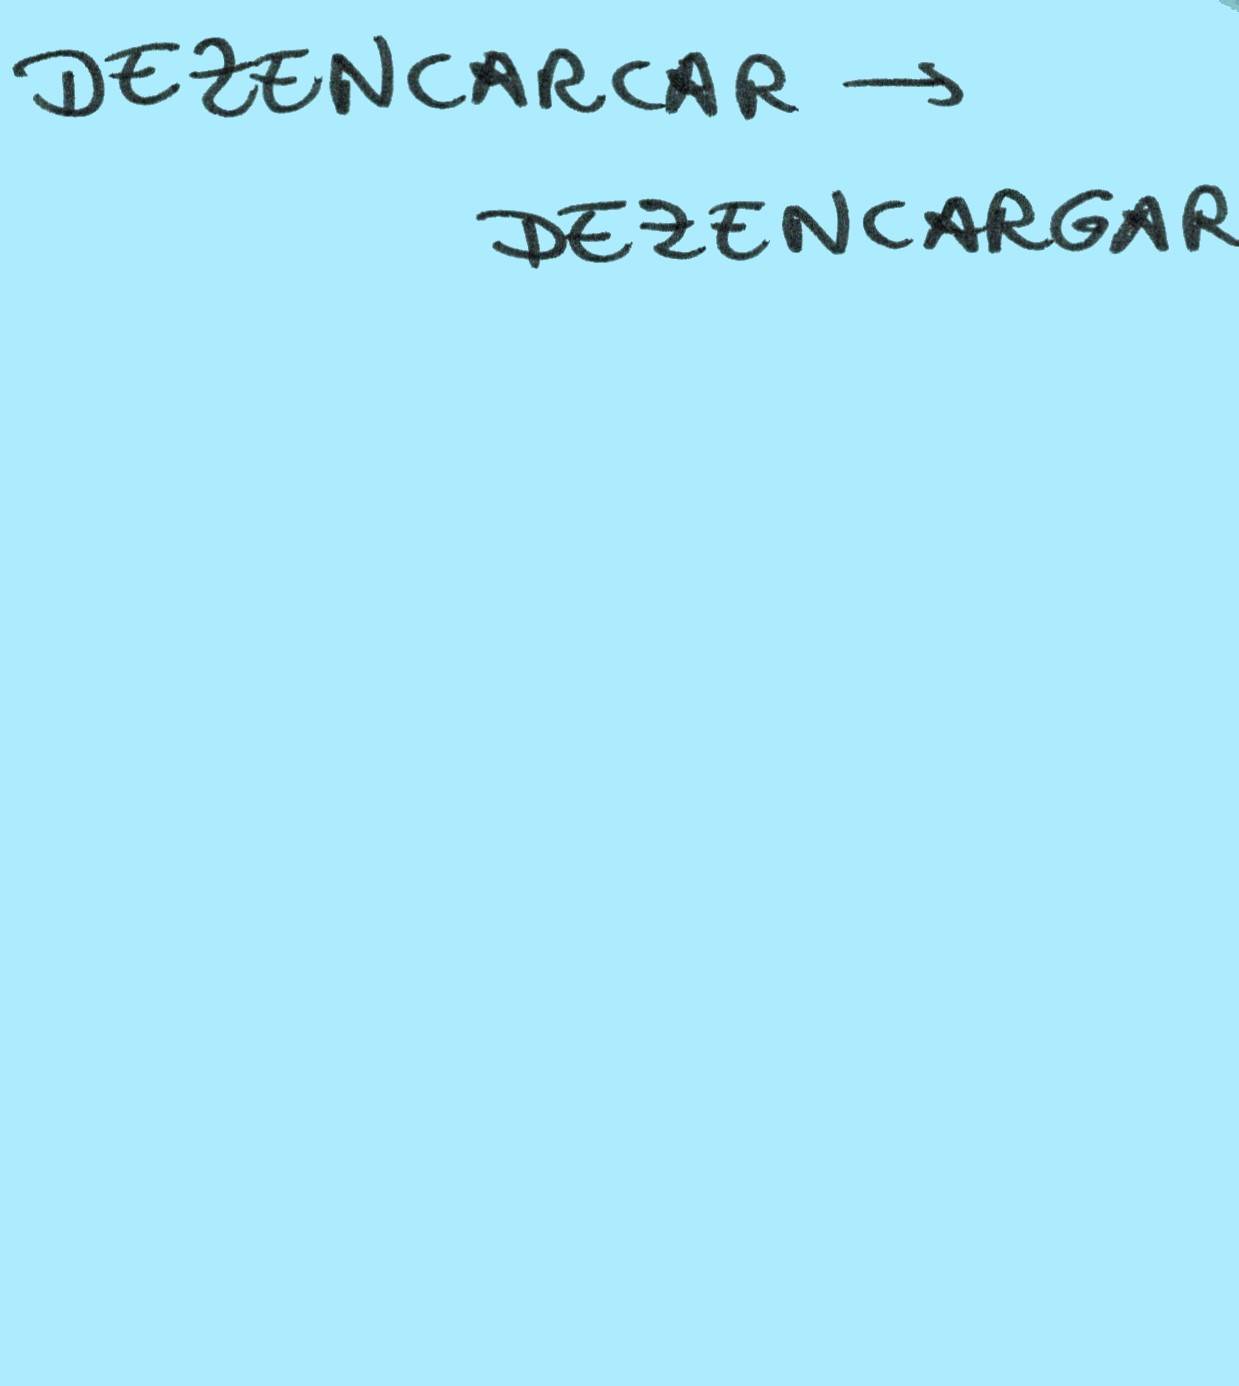 DEZENCARCAR →
DEZENCARGAR